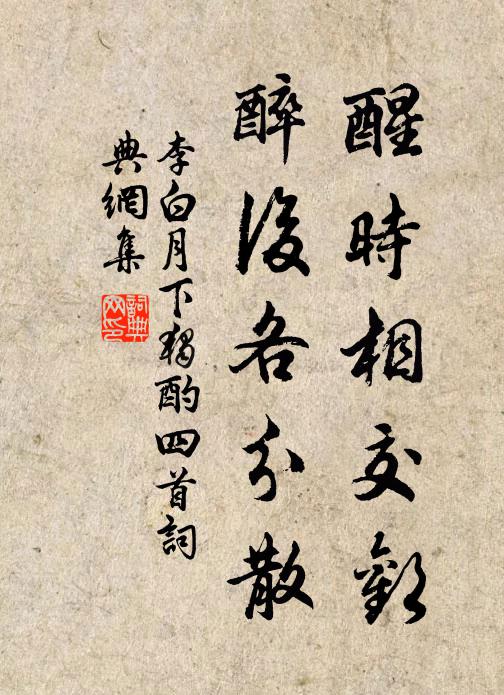 醒時相交歡
醉後各分散
李白月下獨酌四首詞
典網集
詞典
网印